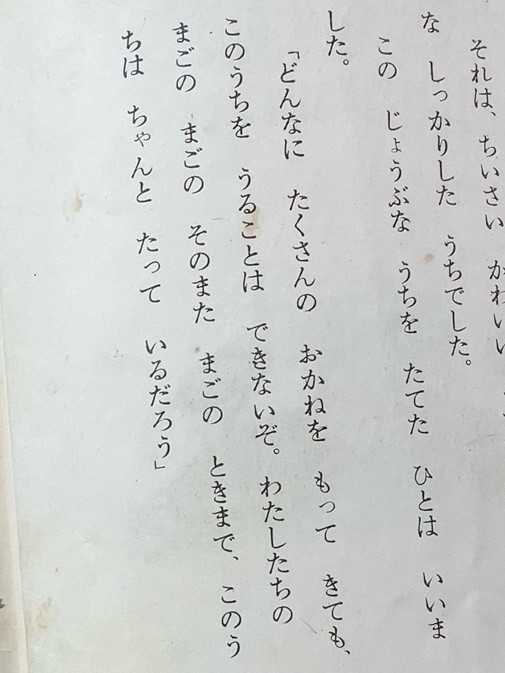 それは、ちいさい かわいい
な しっかりした うちでした。
この じょうぶな うちを たてた ひとは いいま
した。
「どんなに たくさんの おかねを もって きても、
このうちを うることは できないぞ。わたしたちの
まごの まごの そのまた まごの ときまで、このう
ちは ちゃんと たって いるだろう」